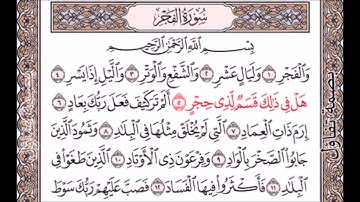 سُورَةُ الفَجْرِ
بِسْمِ اللَّهِ الرَّحْمَٰنِ الرَّحِيمِ
وَالْفَجْرِ ١ وَلَيَالٍ عَشْرٍ ٢ وَالشَّفْعِ وَالْوَتْرِ ٣ وَالَّيْلِ إِذَا يَسْرِ ٤
هَلْ فِي ذَٰلِكَ قَسَمٌ لِّذِي حِجْرٍ ٥ أَلَمْ تَرَ كَيْفَ فَعَلَ رَبُّكَ بِعَادٍ ٦
إِرَمَ ذَاتِ الْعِمَادِ ٧ الَّتِي لَمْ يُخْلَقْ مِثْلُهَا فِي الْبِلَٰدِ ٨ وَثَمُودَ الَّذِينَ
جَابُوا الصَّخْرَ بِالْوَادِ ٩ وَفِرْعَوْنَ ذِي الْأَوْتَادِ ١٠ الَّذِينَ طَغَوْا فِي
الْبِلَٰدِ ١١ فَأَكْثَرُوا فِيهَا الْفَسَادَ ١٢ فَصَبَّ عَلَيْهِمْ رَبُّكَ سَوْطَ